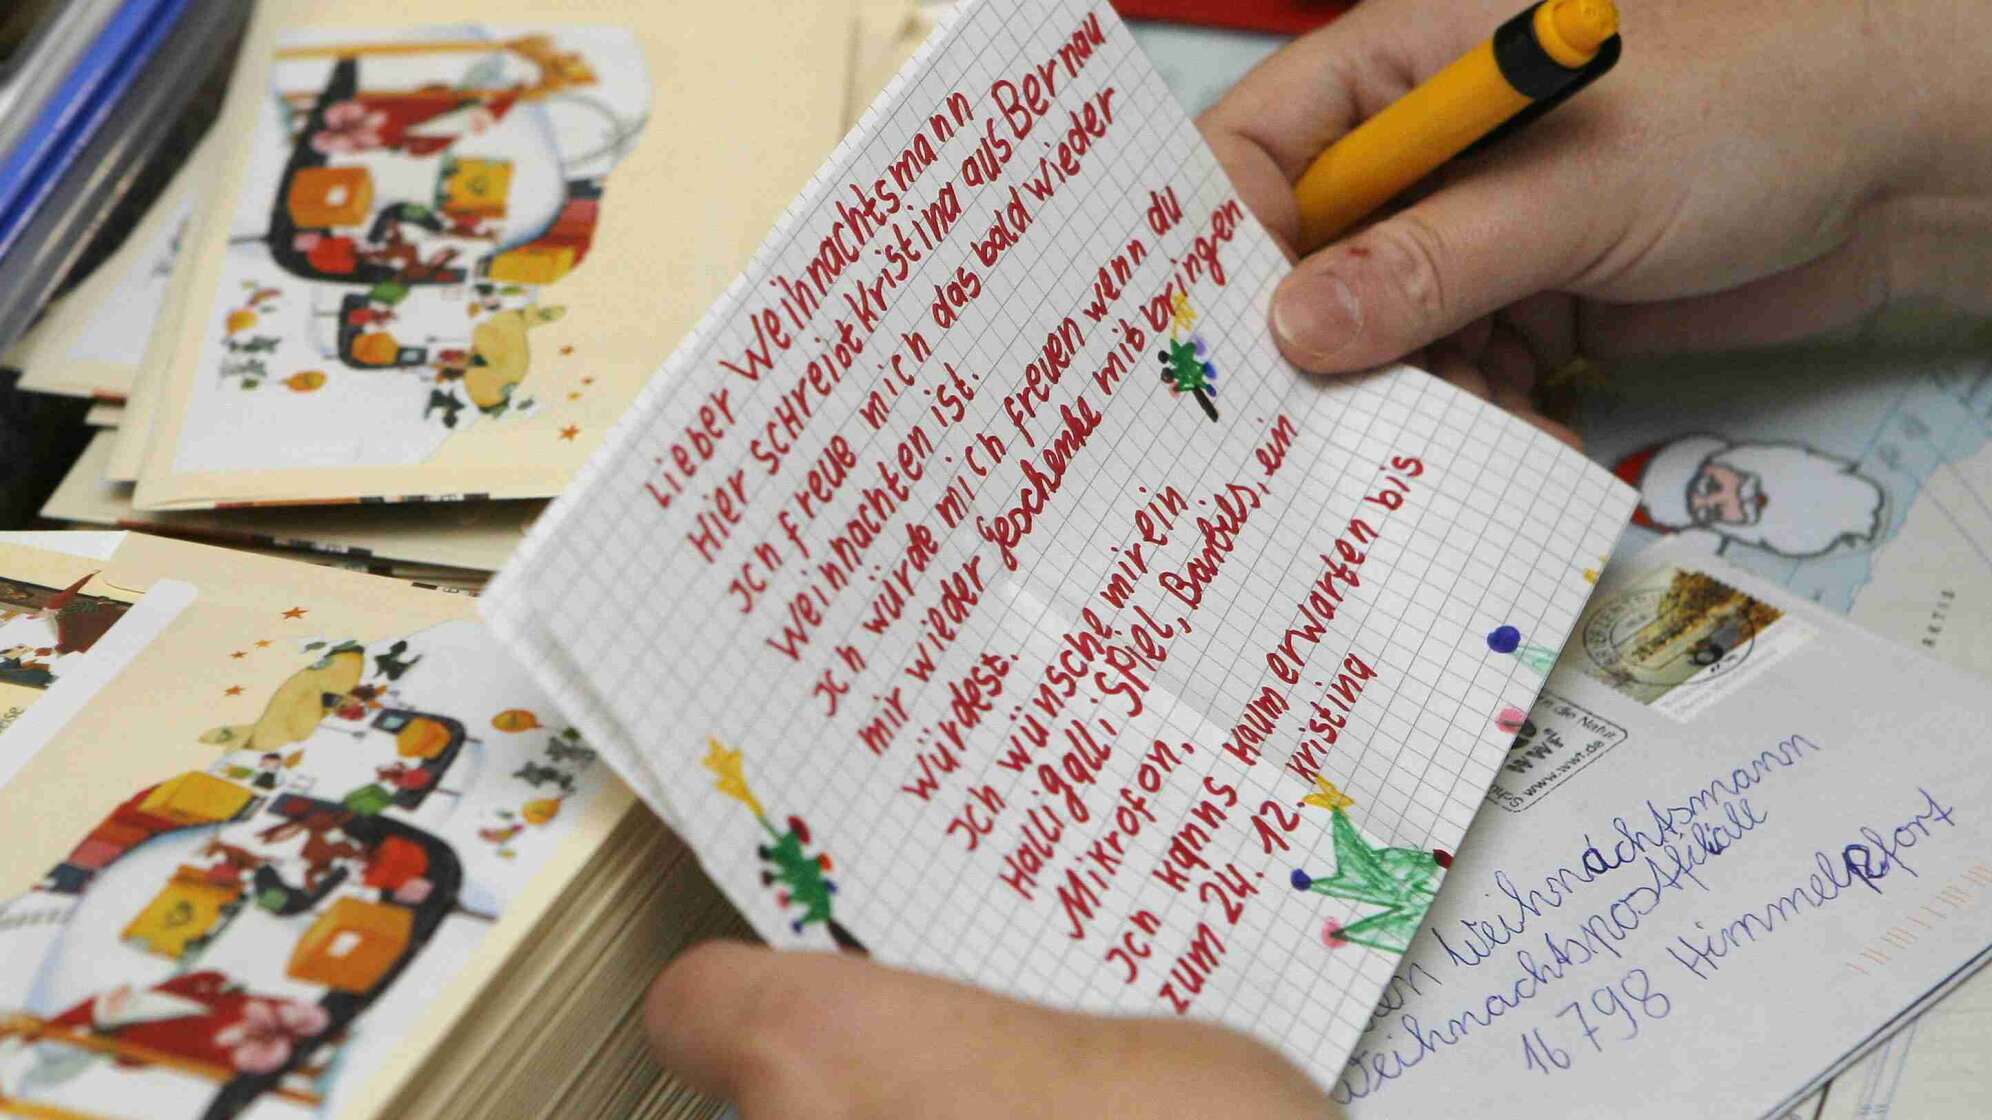 Lieber Weihnachtsmann
Hier schreibt Kristina aus Bernau
Ich freue mich das bald wieder
Weihnachten ist.
Ich würde mich freuen wenn du
mir wieder Geschenke mitbringen
würdest.
Ich wünsche mir ein
Halli galli Spiel, Barbies, ein
Mikrofon.
Ich kanns kaum erwarten bis
zum 24. 12. Kristina
WWF
www.wwf.de
Weihnachtsmann
Weihnachtspostfiliale
16798 Himmelpfort